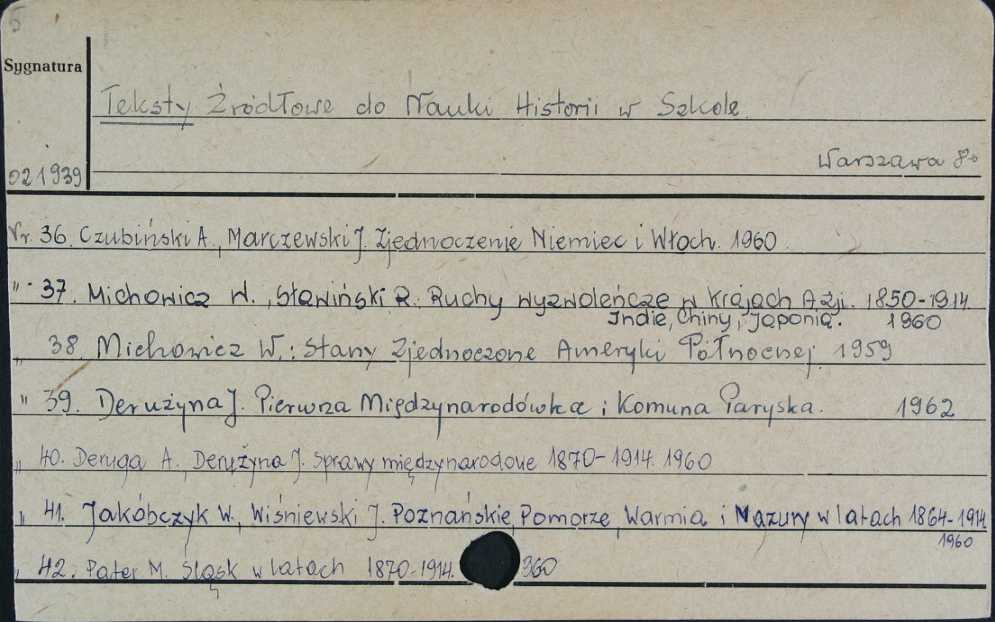 5
Sygnatura
Teksty Źródłowe do Nauki Historii w Szkole.
Warszawa 8°
021939
Nr. 36. Czubiński A., Marczewski J. Zjednoczenie Niemiec i Włoch. 1960
" 37. Michowicz W., Sławiński R. Ruchy wyzwoleńcze w krajach Azji. 1850-1914
Indie, Chiny, Japonia. 1960
" 38. Michowicz W.: Stany Zjednoczone Ameryki Północnej 1959
" 39. Derużyna J. Pierwsza Międzynarodówka i Komuna Paryska. 1962
" 40. Deruga A., Derużyna J. Sprawy międzynarodowe 1870-1914. 1960
" 41. Jakóbczyk W., Wiśniewski J. Poznańskie, Pomorze, Warmia i Mazury w latach 1864-1914
1960
" 42. Pater M. Śląsk w latach 1870-1914. 360